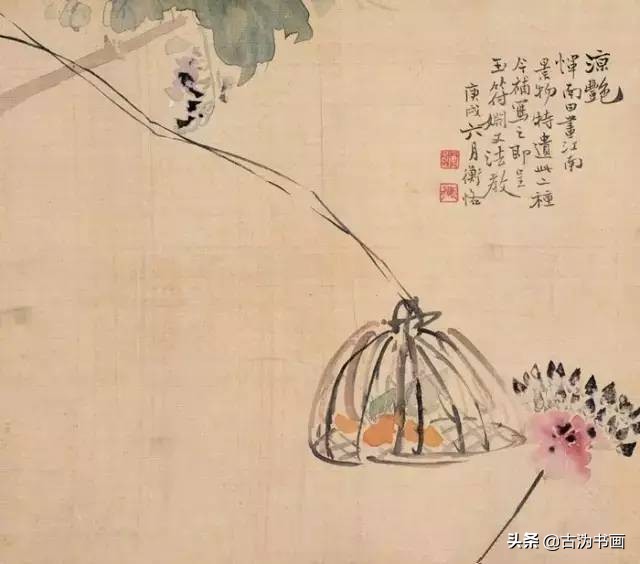 涼艷
惲南田畫江南
景物特遺此二種
今補寫之即呈
玉符姻丈法教
庚戌六月衡恪
头条 @古沩书画